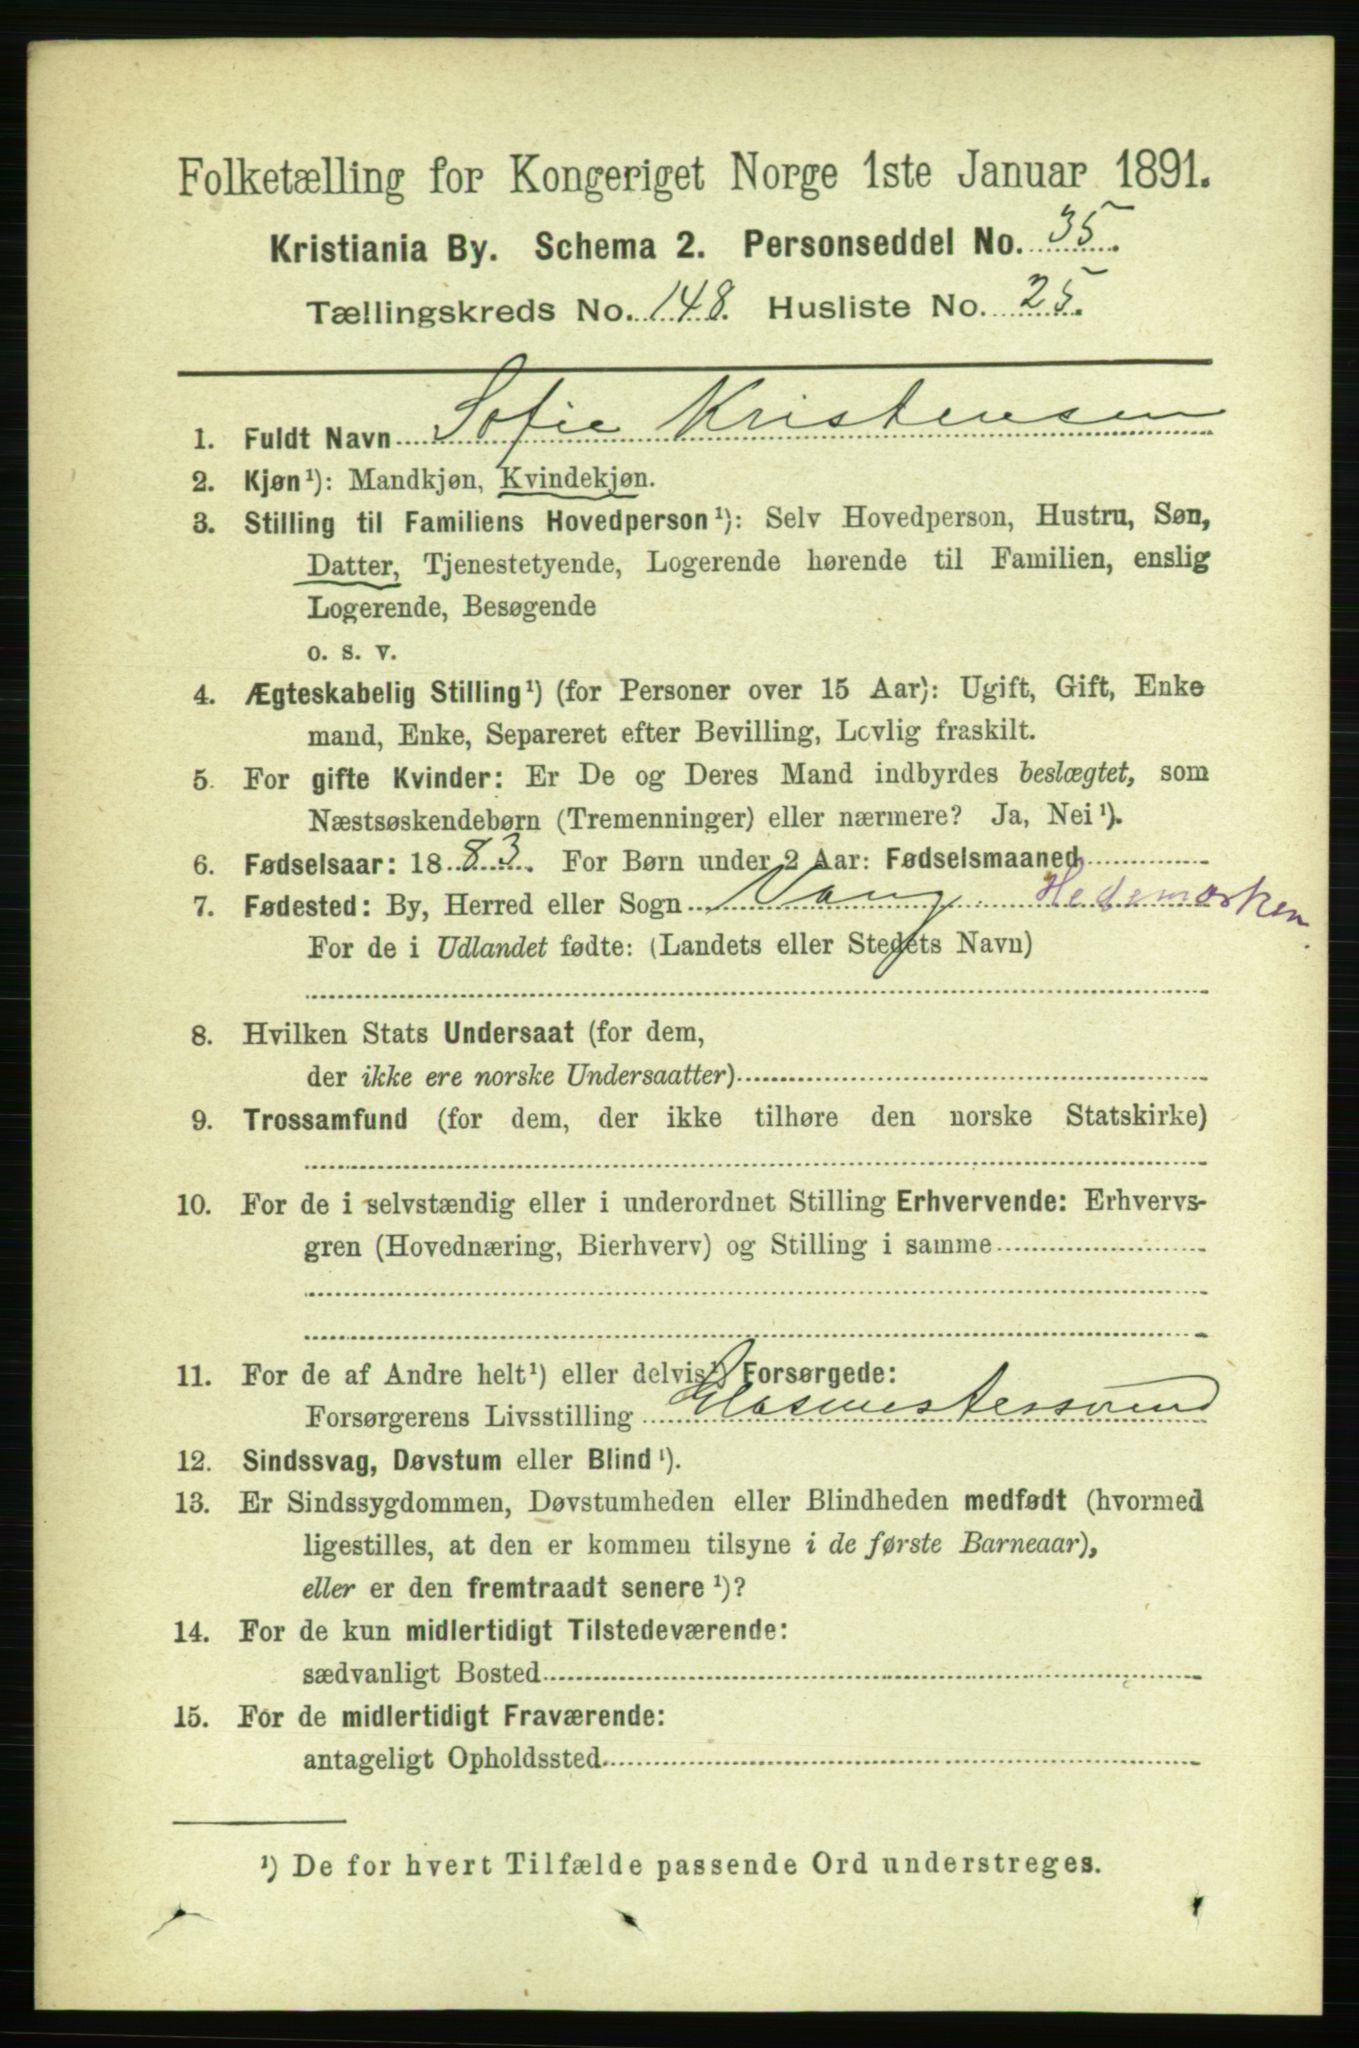 Folketælling for Kongeriget Norge 1ste Januar 1891.
Kristiania By. Schema 2. Personseddel No. 35.
Tællingskreds No. 148. Husliste No. 25.
1. Fuldt Navn Sofie Kristensen
2. Kjøn¹): Mandkjøn, Kvindekjøn.
3. Stilling til Familiens Hovedperson¹): Selv Hovedperson, Hustru, Søn,
Datter, Tjenestetyende, Logerende hørende til Familien, enslig
Logerende, Besøgende
o. s. v.
4. Ægteskabelig Stilling¹) (for Personer over 15 Aar): Ugift, Gift, Enke
mand, Enke, Separeret efter Bevilling, Lovlig fraskilt.
5. For gifte Kvinder: Er De og Deres Mand indbyrdes beslægtet, som
Næstsøskendebørn (Tremenninger) eller nærmere? Ja, Nei¹).
6. Fødselsaar: 1883. For Børn under 2 Aar: Fødselsmaaned
7. Fødested: By, Herred eller Sogn Vang. Hedemarken.
For de i Udlandet fødte: (Landets eller Stedets Navn)
8. Hvilken Stats Undersaat (for dem,
der ikke ere norske Undersaatter)
9. Trossamfund (for dem, der ikke tilhøre den norske Statskirke)
10. For de i selvstændig eller i underordnet Stilling Erhvervende: Erhvervs-
gren (Hovednæring, Bierhverv) og Stilling i samme
11. For de af Andre helt¹) eller delvis¹) Forsørgede:
Forsørgerens Livsstilling Glasmestersvend
12. Sindssvag, Døvstum eller Blind¹).
13. Er Sindssygdommen, Døvstumheden eller Blindheden medfødt (hvormed
ligestilles, at den er kommen tilsyne i de første Barneaar),
eller er den fremtraadt senere¹)?
14. For de kun midlertidigt Tilstedeværende:
sædvanligt Bosted
15. For de midlertidigt Fraværende:
antageligt Opholdssted
¹) De for hvert Tilfælde passende Ord understreges.